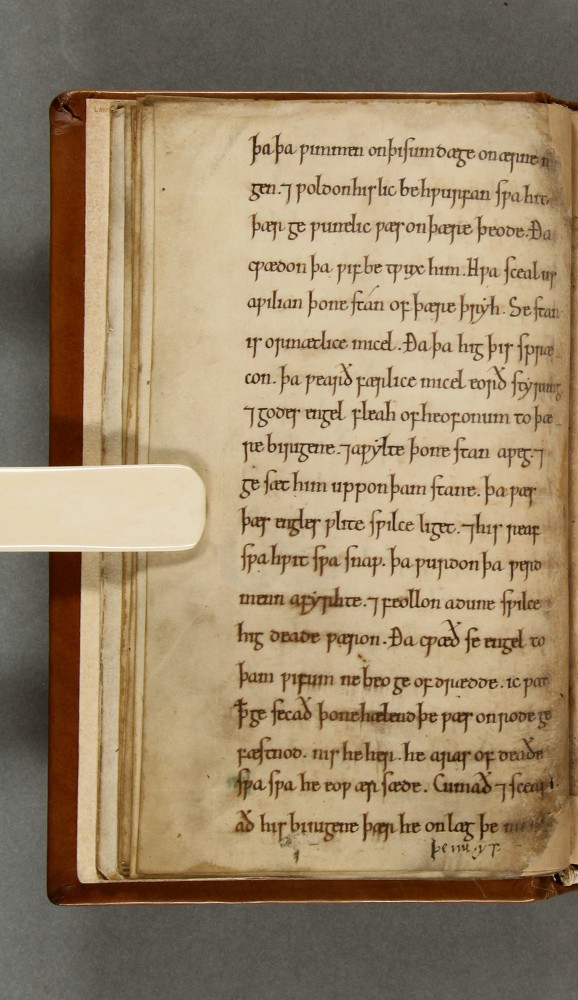 þa þa ƿimmen on þisum dæge on ærne
gen. ⁊ ƿoldon his lic behƿurfan sƿa hit
þær geƿunelic ƿæs on þære þeode. Ða
cƿædon þa ƿif be tƿyx him. Hƿa sceal us
aƿilian þone stán of þære þrýh. Se stan
is ormætlice micel. Ða þa hig þis spræ
con. þa ƿearð færlice micel eorð styrung
⁊ godes engel fleah of heofonum to þæ
re birigene. ⁊ aƿylte þone stan aƿeg. ⁊
ge sæt him uppon þam stane. þa ƿæs
þæs engles ƿlite sƿilce liget. ⁊ his reaf
sƿa hƿit sƿa snaƿ. þa ƿurdon þa ƿeard
menn afyrhte. ⁊ feollon adune sƿilce
hig deade ƿæron. Ða cƿæð se engel to
þam ƿifum ne beo ge of drædde. ic ƿat
ꝥ ge secað þone hælend þe ƿæs on rode ge
fæstnod. nis he her. he aras of deaðe
sƿa sƿa he eoƿ ær sæde. Cumað ⁊ sceaƿi
að his birigene þær he on læg þe